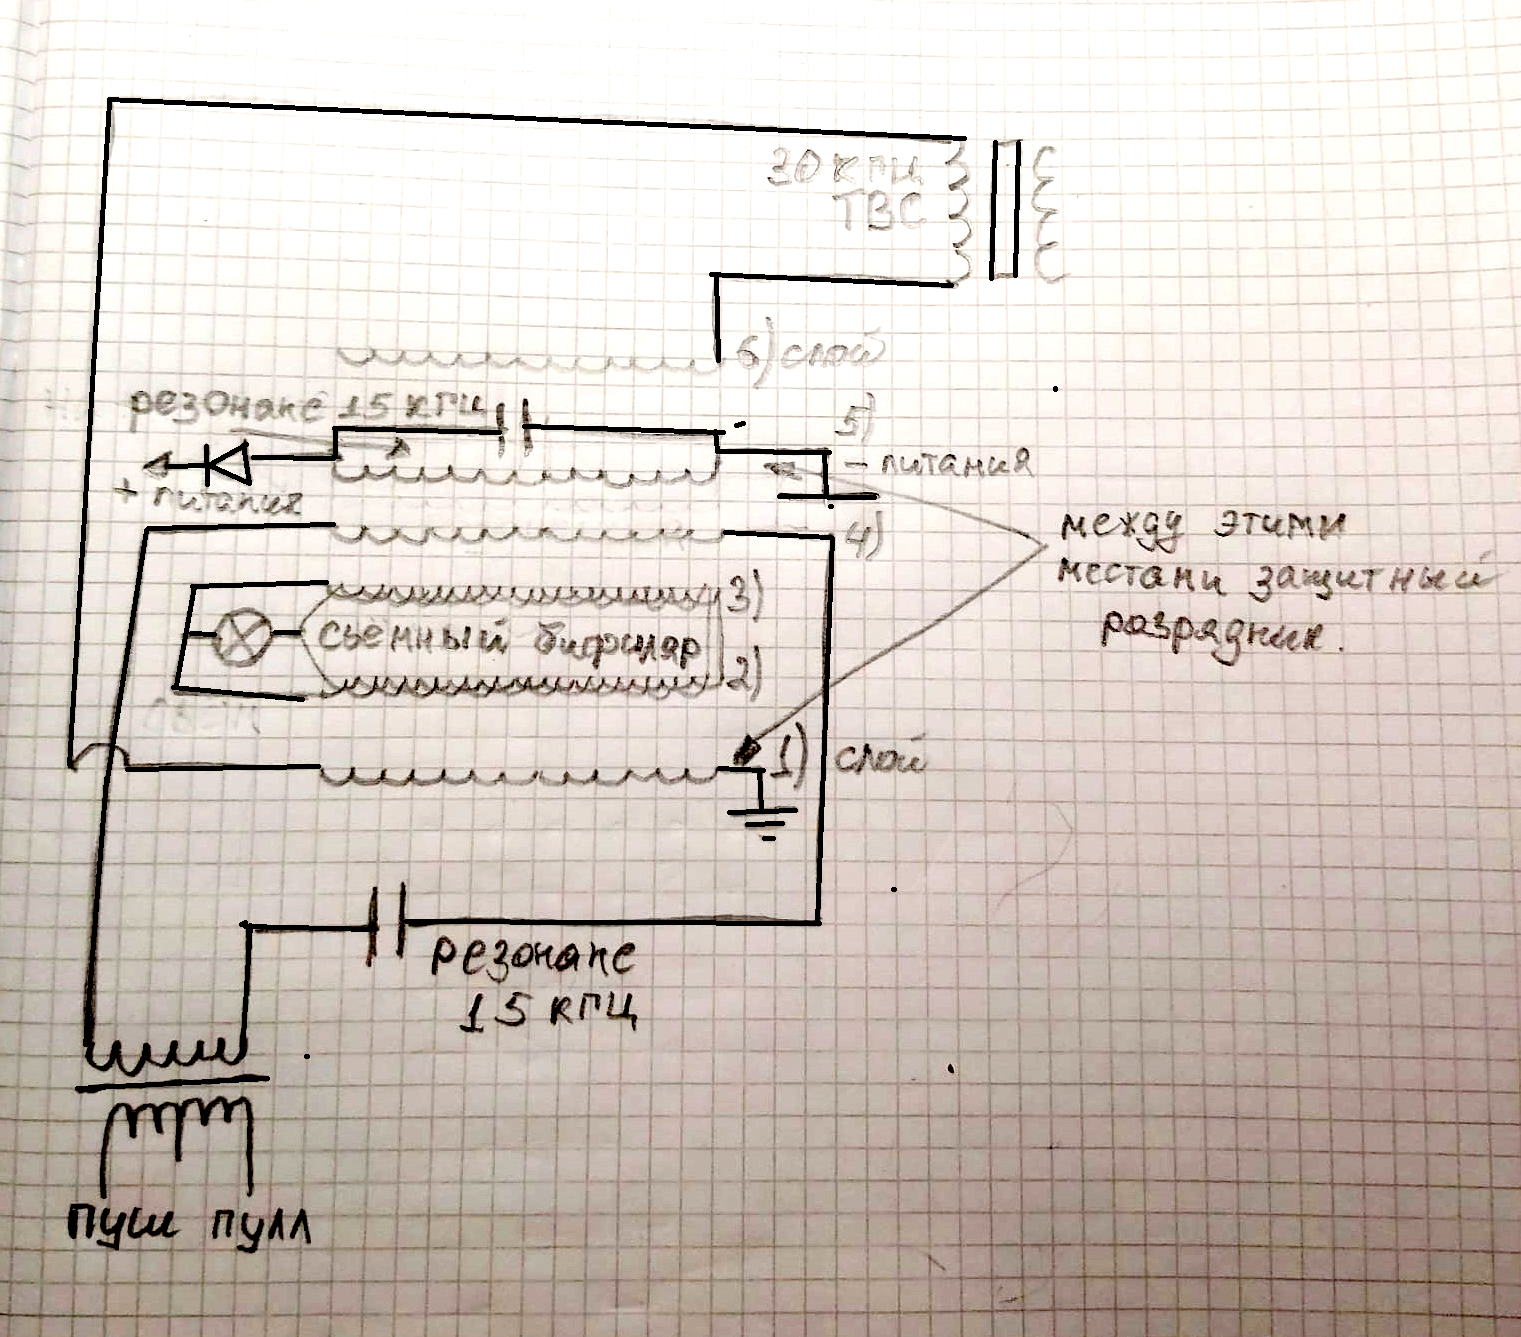 30 кГЦ
ТВС
6) слой
резонанс 15 кГЦ
5)
- питания
+ питания
4)
между этими
местами защитный
разрядник.
3)
сьемный бифиляр
2)
1) слой
резонанс
15 кГЦ
пуш пулл